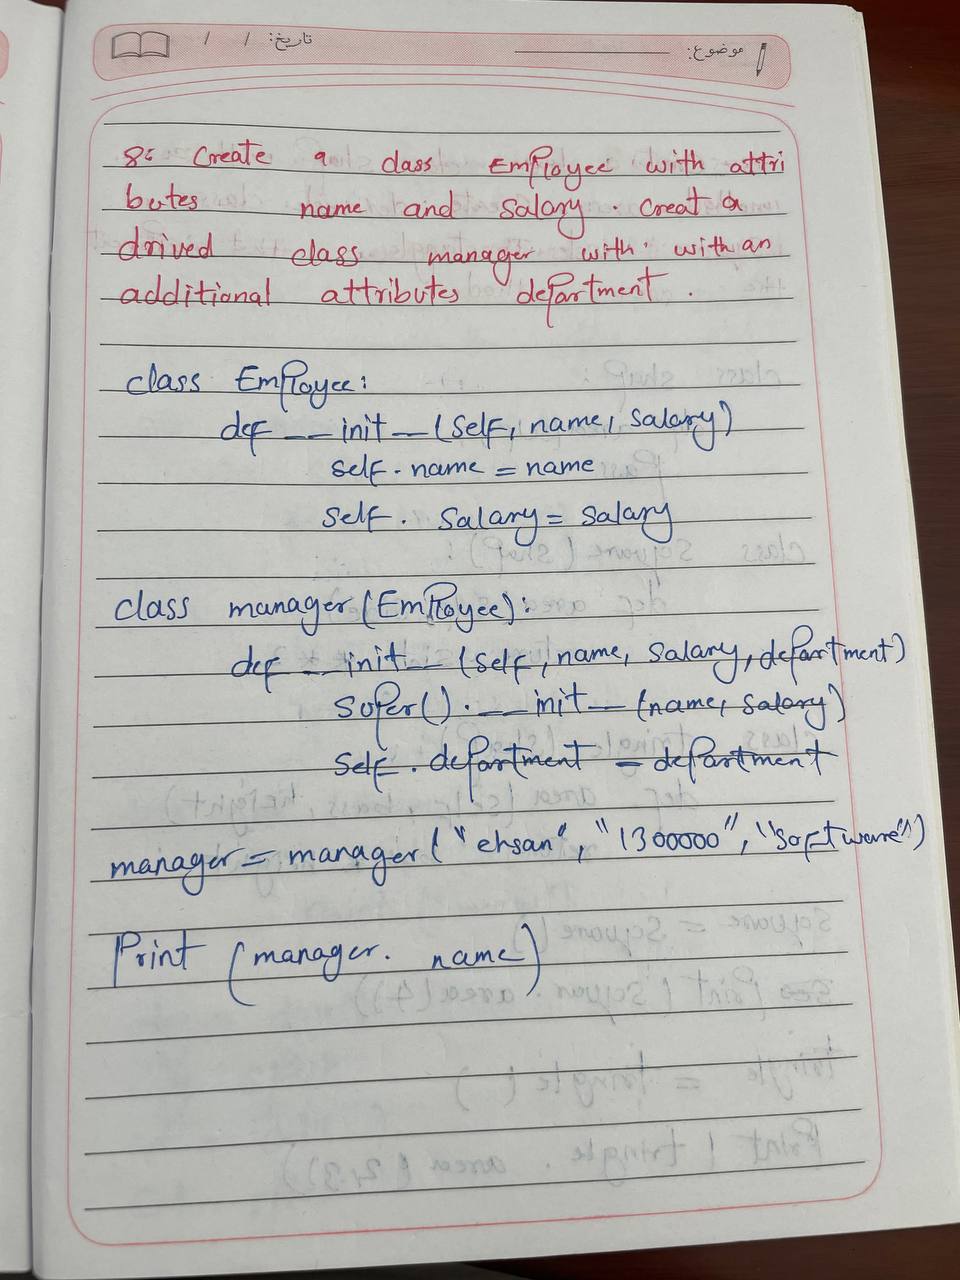 موضوع: تاریخ: / /
8: Create a class Employee with attri
butes name and salary. creat a
drived class manager with with an
additional attributes department.
class Employee:
def __init__(self, name, salary)
self.name = name
self.salary = salary
class manager(Employee):
def __init__(self, name, salary, department)
super().__init__(name, salary)
self.department = department
manager = manager("ehsan", "1300000", "software")
Print (manager. name)